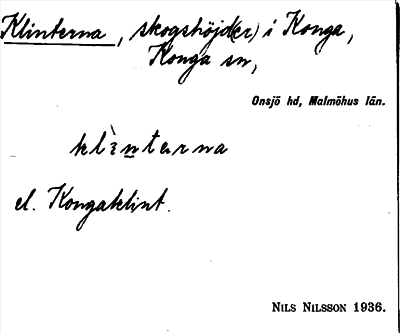 Klinterna, skogshöjd(er) i Konga,
Konga sn,
Onsjö hd, Malmöhus län.
klìnterna
el. Kongaklint.
NILS NILSSON 1936.